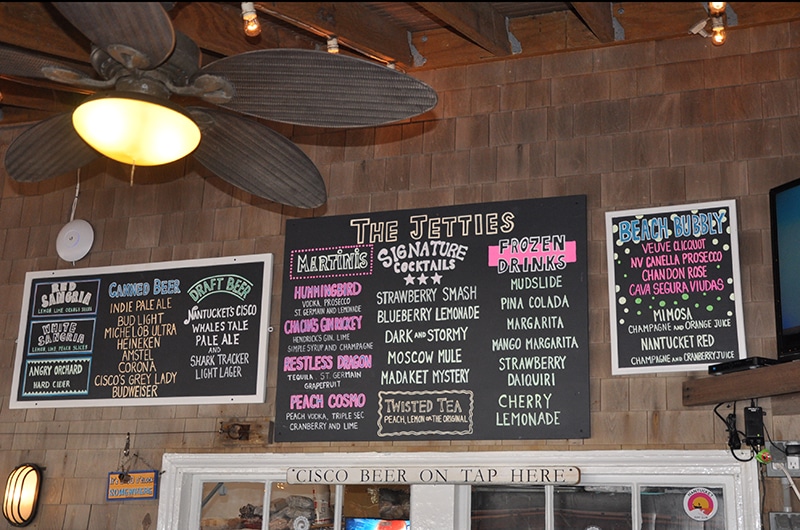 RED
SANGRIA
LEMON LIME ORANGE SLICES
WHITE
SANGRIA
LEMON LIME PEACH SLICES
ANGRY ORCHARD
HARD CIDER
CANNED BEER
INDIE PALE ALE
BUD LIGHT
MICHELOB ULTRA
HEINEKEN
AMSTEL
CORONA
CISCO'S GREY LADY
BUDWEISER
DRAFT BEER
NANTUCKET'S CISCO
WHALES TALE
PALE ALE
AND
SHARK TRACKER
LIGHT LAGER
THE JETTIES
MARTINIS
HUMMINGBIRD
VODKA, PROSECCO
ST GERMAIN AND LEMONADE
GIN RICKEY
HENDRICKS GIN, LIME
SIMPLE SYRUP AND CHAMPAGNE
RESTLESS DRAGON
TEQUILA ST. GERMAIN
GRAPEFRUIT
PEACH COSMO
PEACH VODKA, TRIPLE SEC
CRANBERRY AND LIME
SIGNATURE
COCKTAILS
STRAWBERRY SMASH
BLUEBERRY LEMONADE
DARK AND STORMY
MOSCOW MULE
MADAKET MYSTERY
TWISTED TEA
PEACH, LEMON OR THE ORIGINAL
FROZEN
DRINKS
MUDSLIDE
PINA COLADA
MARGARITA
MANGO MARGARITA
STRAWBERRY
DAIQUIRI
CHERRY
LEMONADE
BEACH BUBBLY
VEUVE CLICQUOT
NV CANELLA PROSECCO
CHANDON ROSE
CAVA SEGURA VIUDAS
MIMOSA
CHAMPAGNE AND ORANGE JUICE
NANTUCKET RED
CHAMPAGNE AND CRANBERRY JUICE
CISCO BEER ON TAP HERE
SOMEWHERE